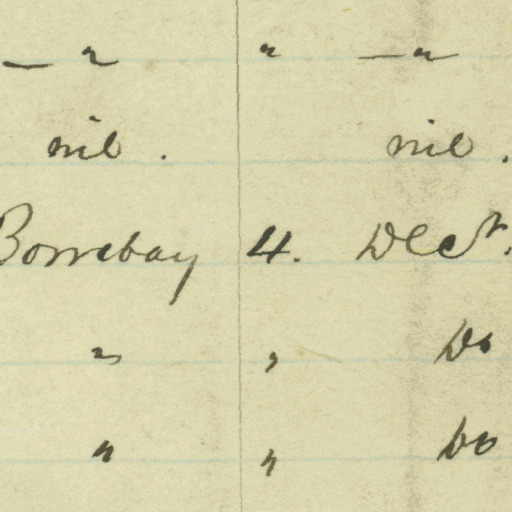 — " " — "
nil . nil .
Bombay 4. Decr.
" " Do
" " Do